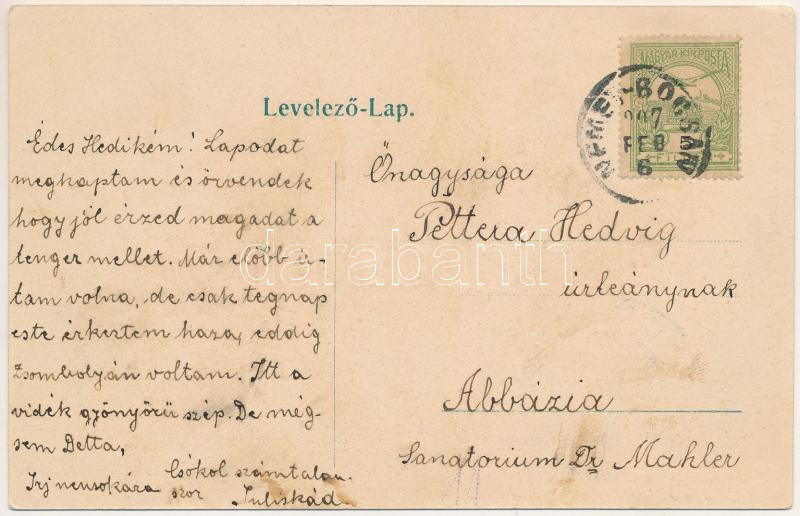 Levelező-Lap.
Édes Hedikém! Lapodat
megkaptam és örvendek
hogy jól érzed magadat a
tenger mellet. Már előbb ír-
tam volna, de csak tegnap
este érkertem haza, eddig
Zsombolyán voltam. Itt a
vidék gyönyörű szép. De még-
sem Detta,
Irj nemsokára
Csókol számtalan-
szor
Juliskád.
MAGYAR KIR. POSTA
NÉMET-BOGSÁN
907
FEB
6
Őnagysága
Pettera Hedvig
úrleánynak
Abbázia
Sanatorium Dr Mahler
darabanth